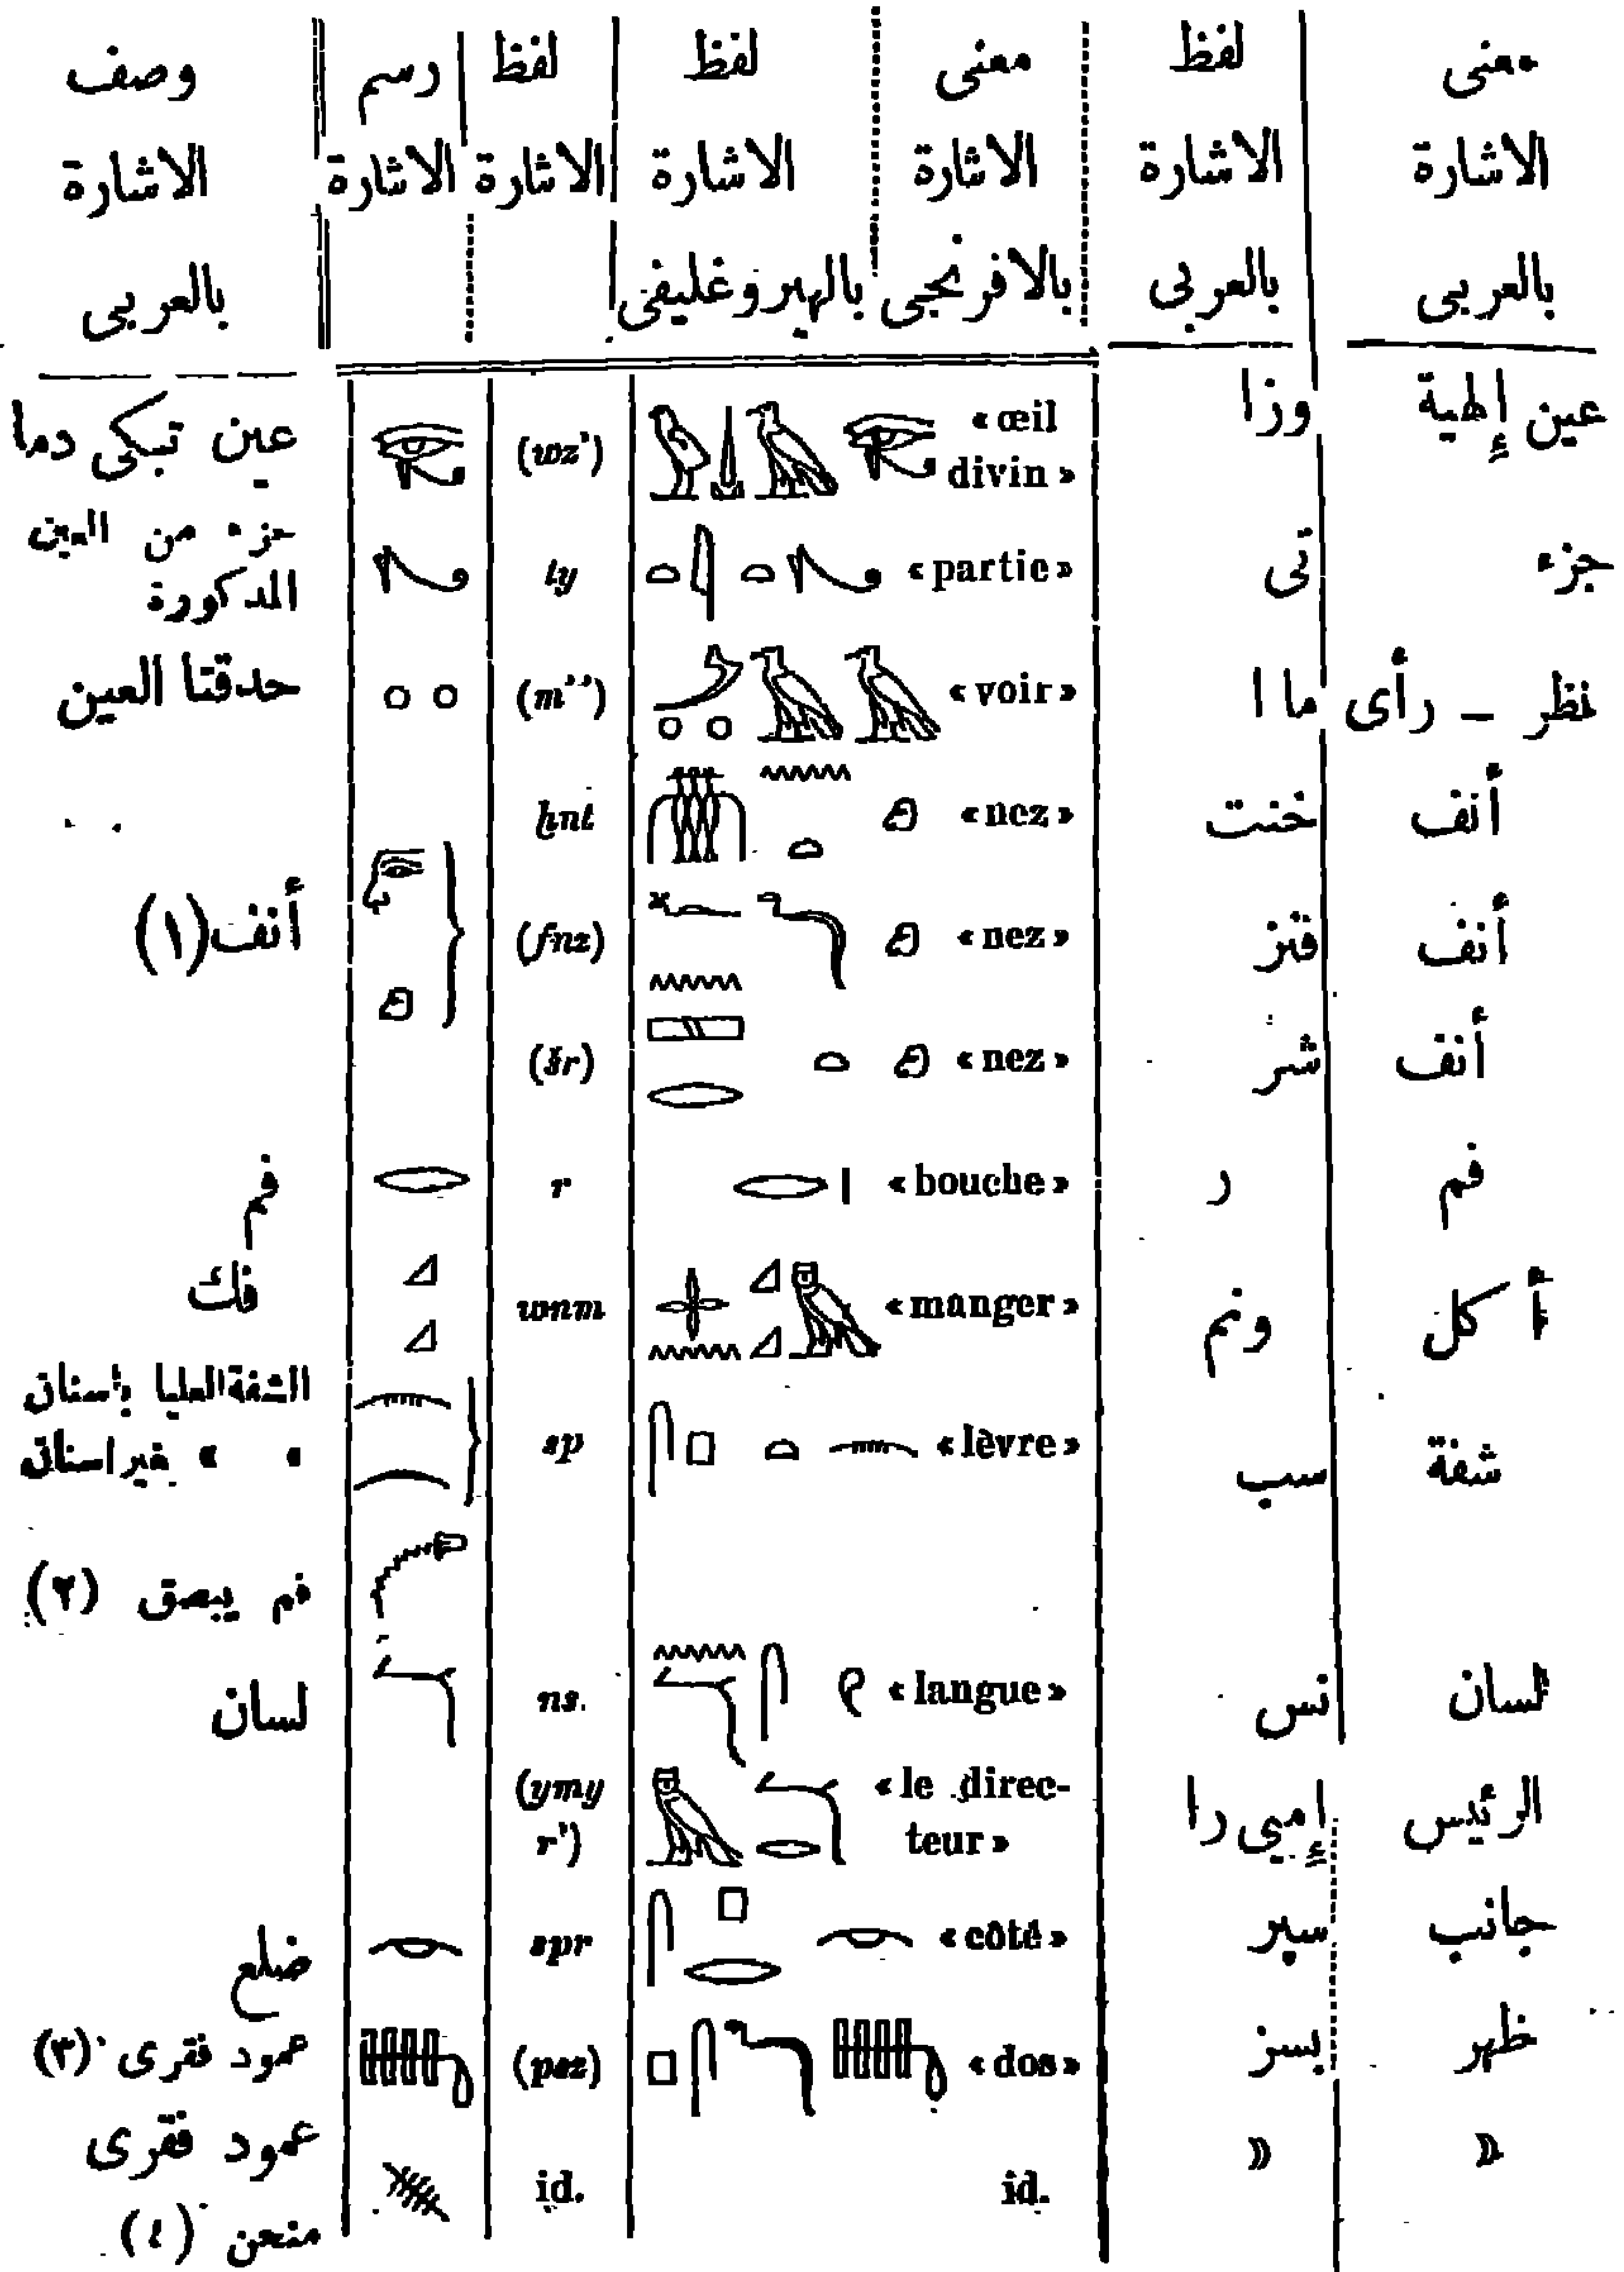 معنى لفظ معنى لفظ لفظ رسم وصف
الاشارة الاشارة الاشارة الاشارة الاشارة الاشارة الاشارة
بالعربى بالعربى بالافرنجى بالهيروغليفى بالعربى
عين إلهية وزا «œil divin» (wz') عين تبكى دما
جزء تى «partie» ty جزء من العين المذكورة
نظر – رأى ما ا «voir» (m'') حدقتا العين
أنف خنت «nez» ḫnt
أنف فنز «nez» (fnz) أنف (١)
أنف شر «nez» (šr)
فم ر «bouche» r فم
أكل ونم «manger» wnm فك
شفة سب «lèvre» sp الشفة العليا باسنان
» » بغير اسنان
فم يبصق (٢)
لسان نس «langue» ns. لسان
الرئيس إميى را «le directeur» (ymy r')
جانب سپر «côté» spr ضلع
ظهر پسز «dos» (psz) عمود فقرى (٣)
» » id. id. عمود فقرى منحن (٤)